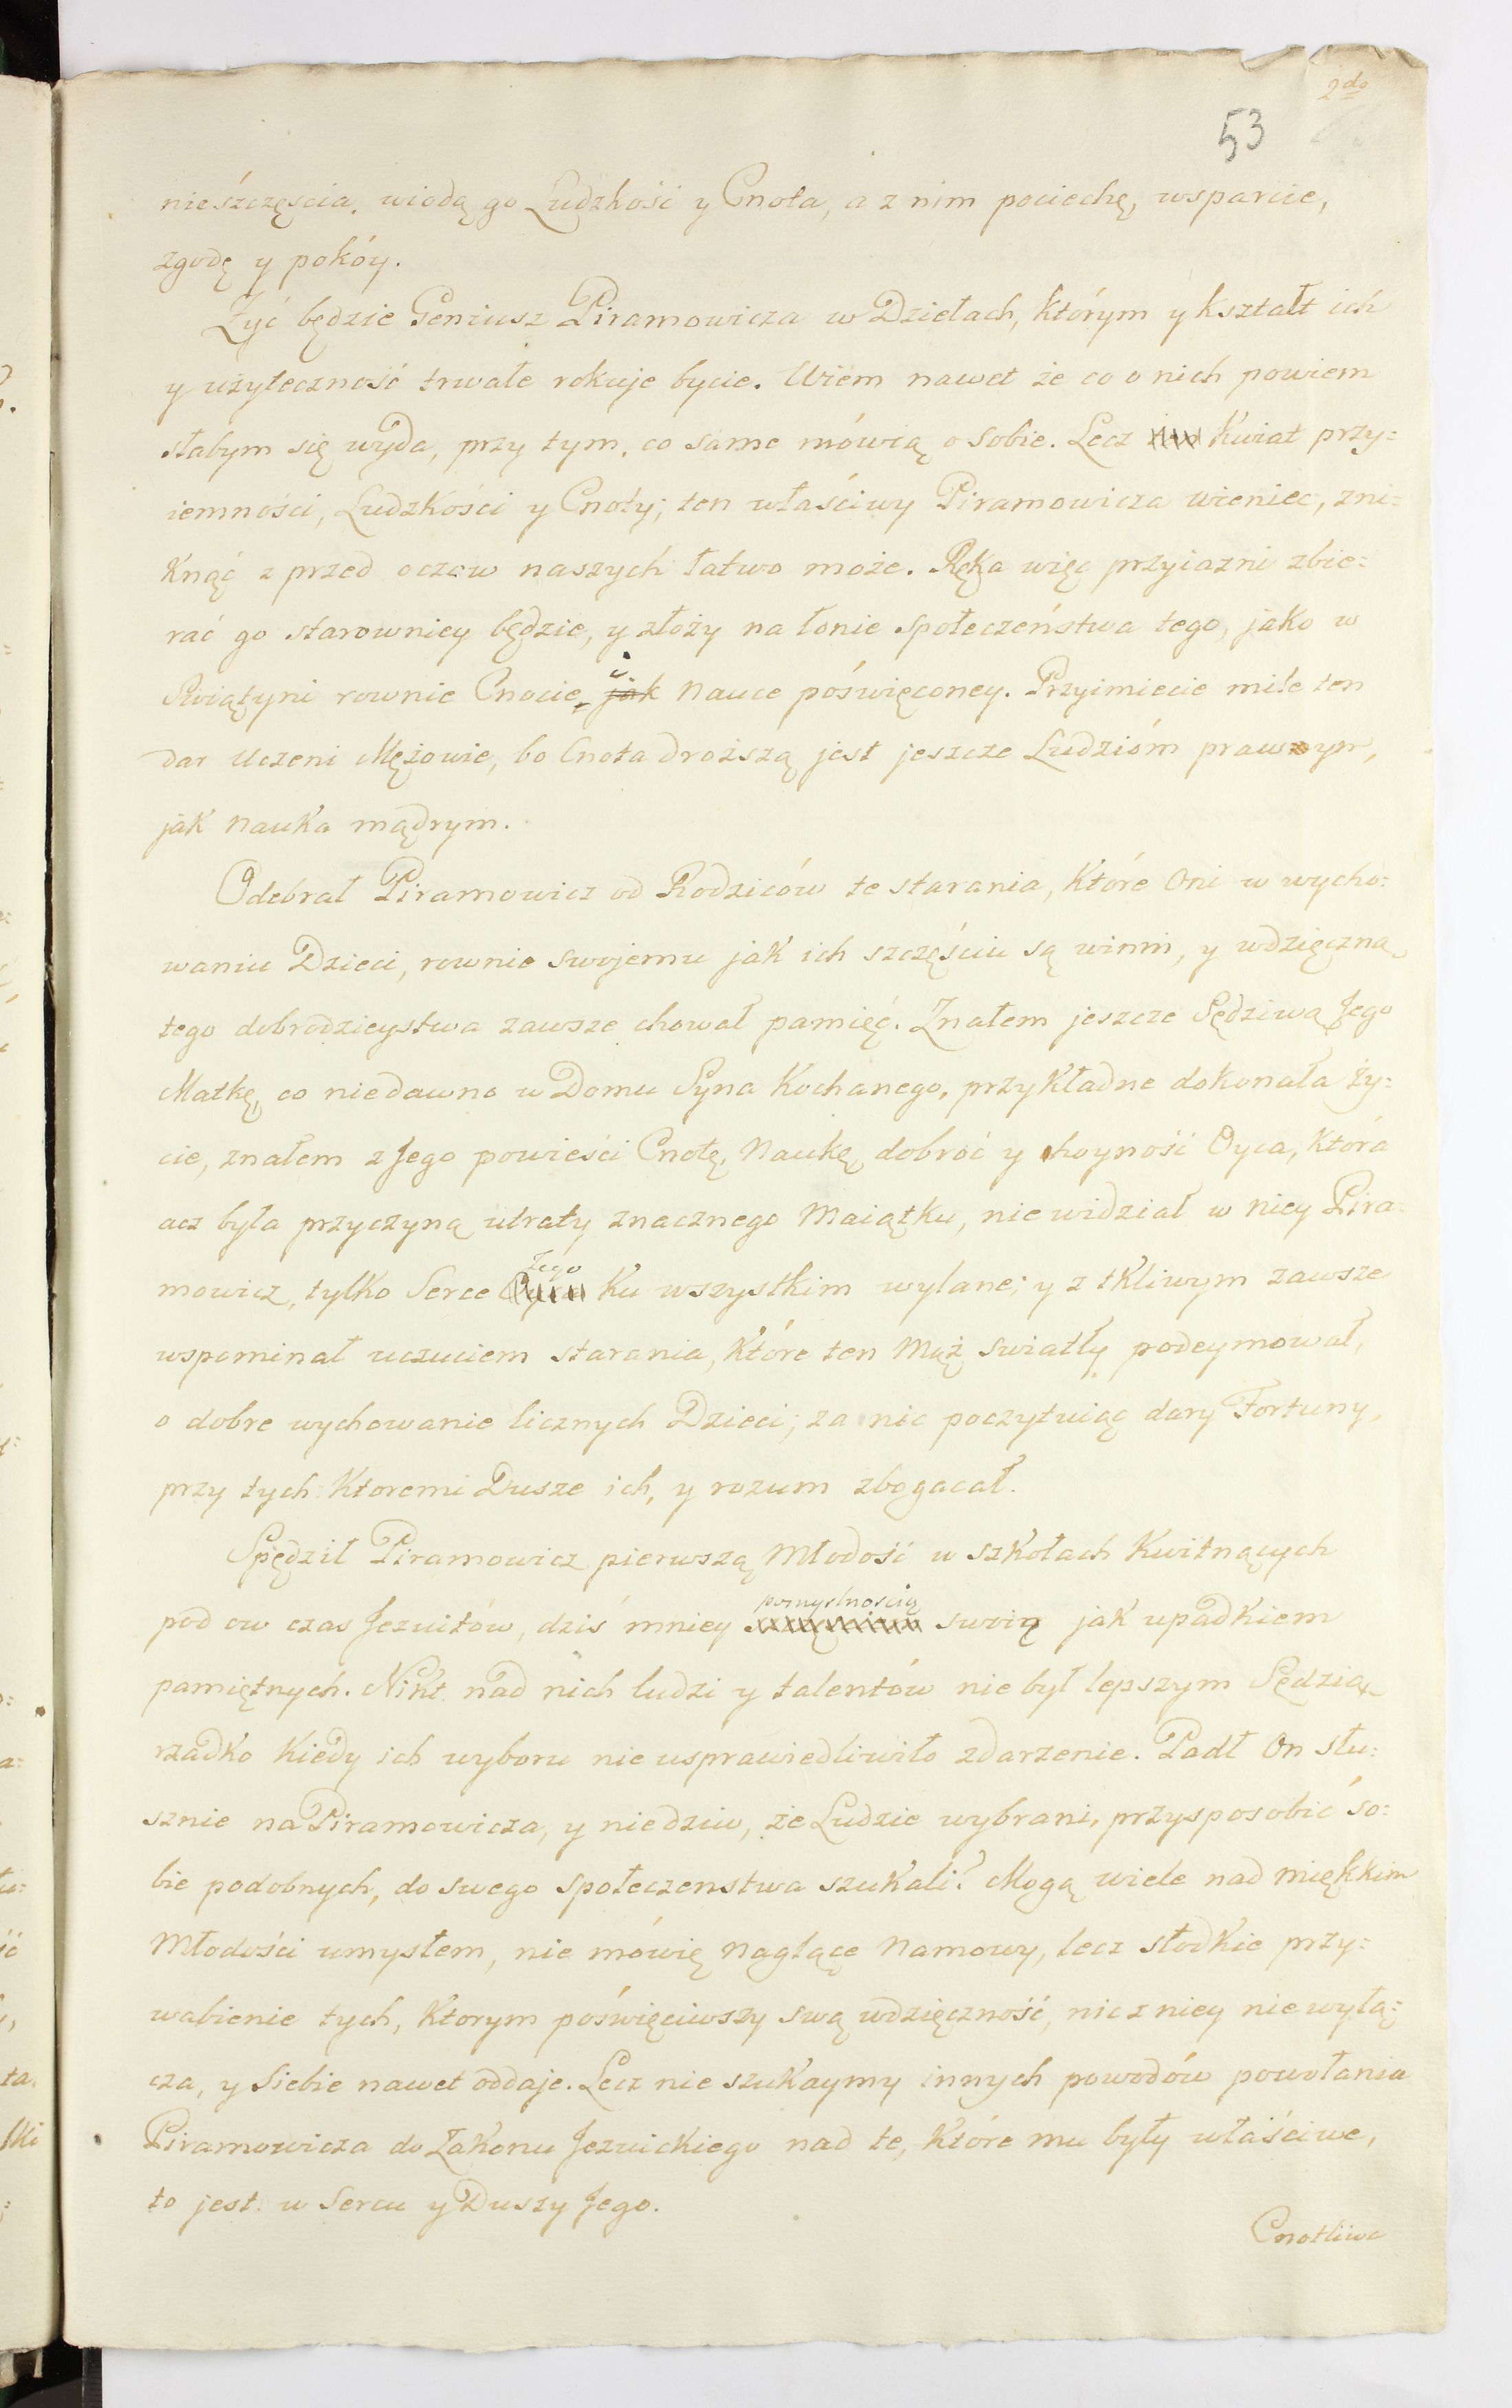 2do
53
nieszczęscia, wiodą go Ludzkość y Cnota, a z nim pociechę, wsparcie,
zgodę y pokóy.
Żyć będzie Geniusz Piramowicza w Dziełach, którym y kształt ich
y użyteczność trwałe rokuje bycie. Wiem nawet że co o nich powiem
słabym się wyda, przy tym, co same mówią o sobie. Lecz Kwiat przy=
iemności, Ludzkości y Cnoty; ten właściwy Piramowicza wieniec, zni=
knąć z przed oczow naszych łatwo może. Ręka więc przyiazni zbie=
rać go starowniey będzie, y złoży na łonie społeczeństwa tego, jako w
Swiątyni rownie Cnocie, jak i Nauce poświęconey. Przyimiecie mile ten
dar Uczeni Mężowie, bo Cnota droższą jest jeszcze Ludzióm prawym,
jak Nauka mądrym.
Odebrał Piramowicz od Rodziców te starania, Które Oni w wycho=
waniu Dzieci, rownie swojemu jak ich szczęściu są winni, y wdzięczną
tego dobrodzieystwa zawsze chował pamięć. Znałem jeszcze Sędziwą Jego
Matkę, co niedawno w Domu Syna Kochanego, przykładne dokonała ży=
cie, znałem z Jego powieści Cnotę, Naukę, dobroć y hoyność Oyca, która
acz była przyczyną utraty znacznego Maiątku, nie widział w niey Pira=
mowicz, tylko Serce Jego Ku wszystkim wylane; y z tkliwym zawsze
wspominał uczuciem starania, Które ten Mąż swiatły podeymował,
o dobre wychowanie licznych Dzieci; za nic poczytuiąc dary Fortuny,
przy tych Ktoremi Dusze ich, y rozum zbogacał.
Spędził Piramowicz pierwszą Młodość w szkołach Kwitnących
pod ow czas Jezuitów, dziś mniey pomyślnoscią swoią jak upadkiem
pamiętnych. Nikt nad nich ludzi y talentów nie był lepszym Sędzią,
rzadko Kiedy ich wyboru nie usprawiedliwiło zdarzenie. Padł On słu=
sznie na Piramowicza, y niedziw, że Ludzie wybrani, przysposobić so=
bie podobnych, do swego społeczenstwa szukali? Mogą wiele nad miękkim
Młodości umysłem, nie mówię Naglące Namowy, lecz słodkie przy=
wabienie tych, Ktorym poświęciwszy swą wdzięczność, nic z niey nie wyłą=
cza, y Siebie nawet oddaje. Lecz nie szukaymy innych powodów powołania
Piramowicza do Zakonu Jezuickiego nad te, Które mu były właściwe,
to jest w Sercu y Duszy Jego.
Cnotliwe